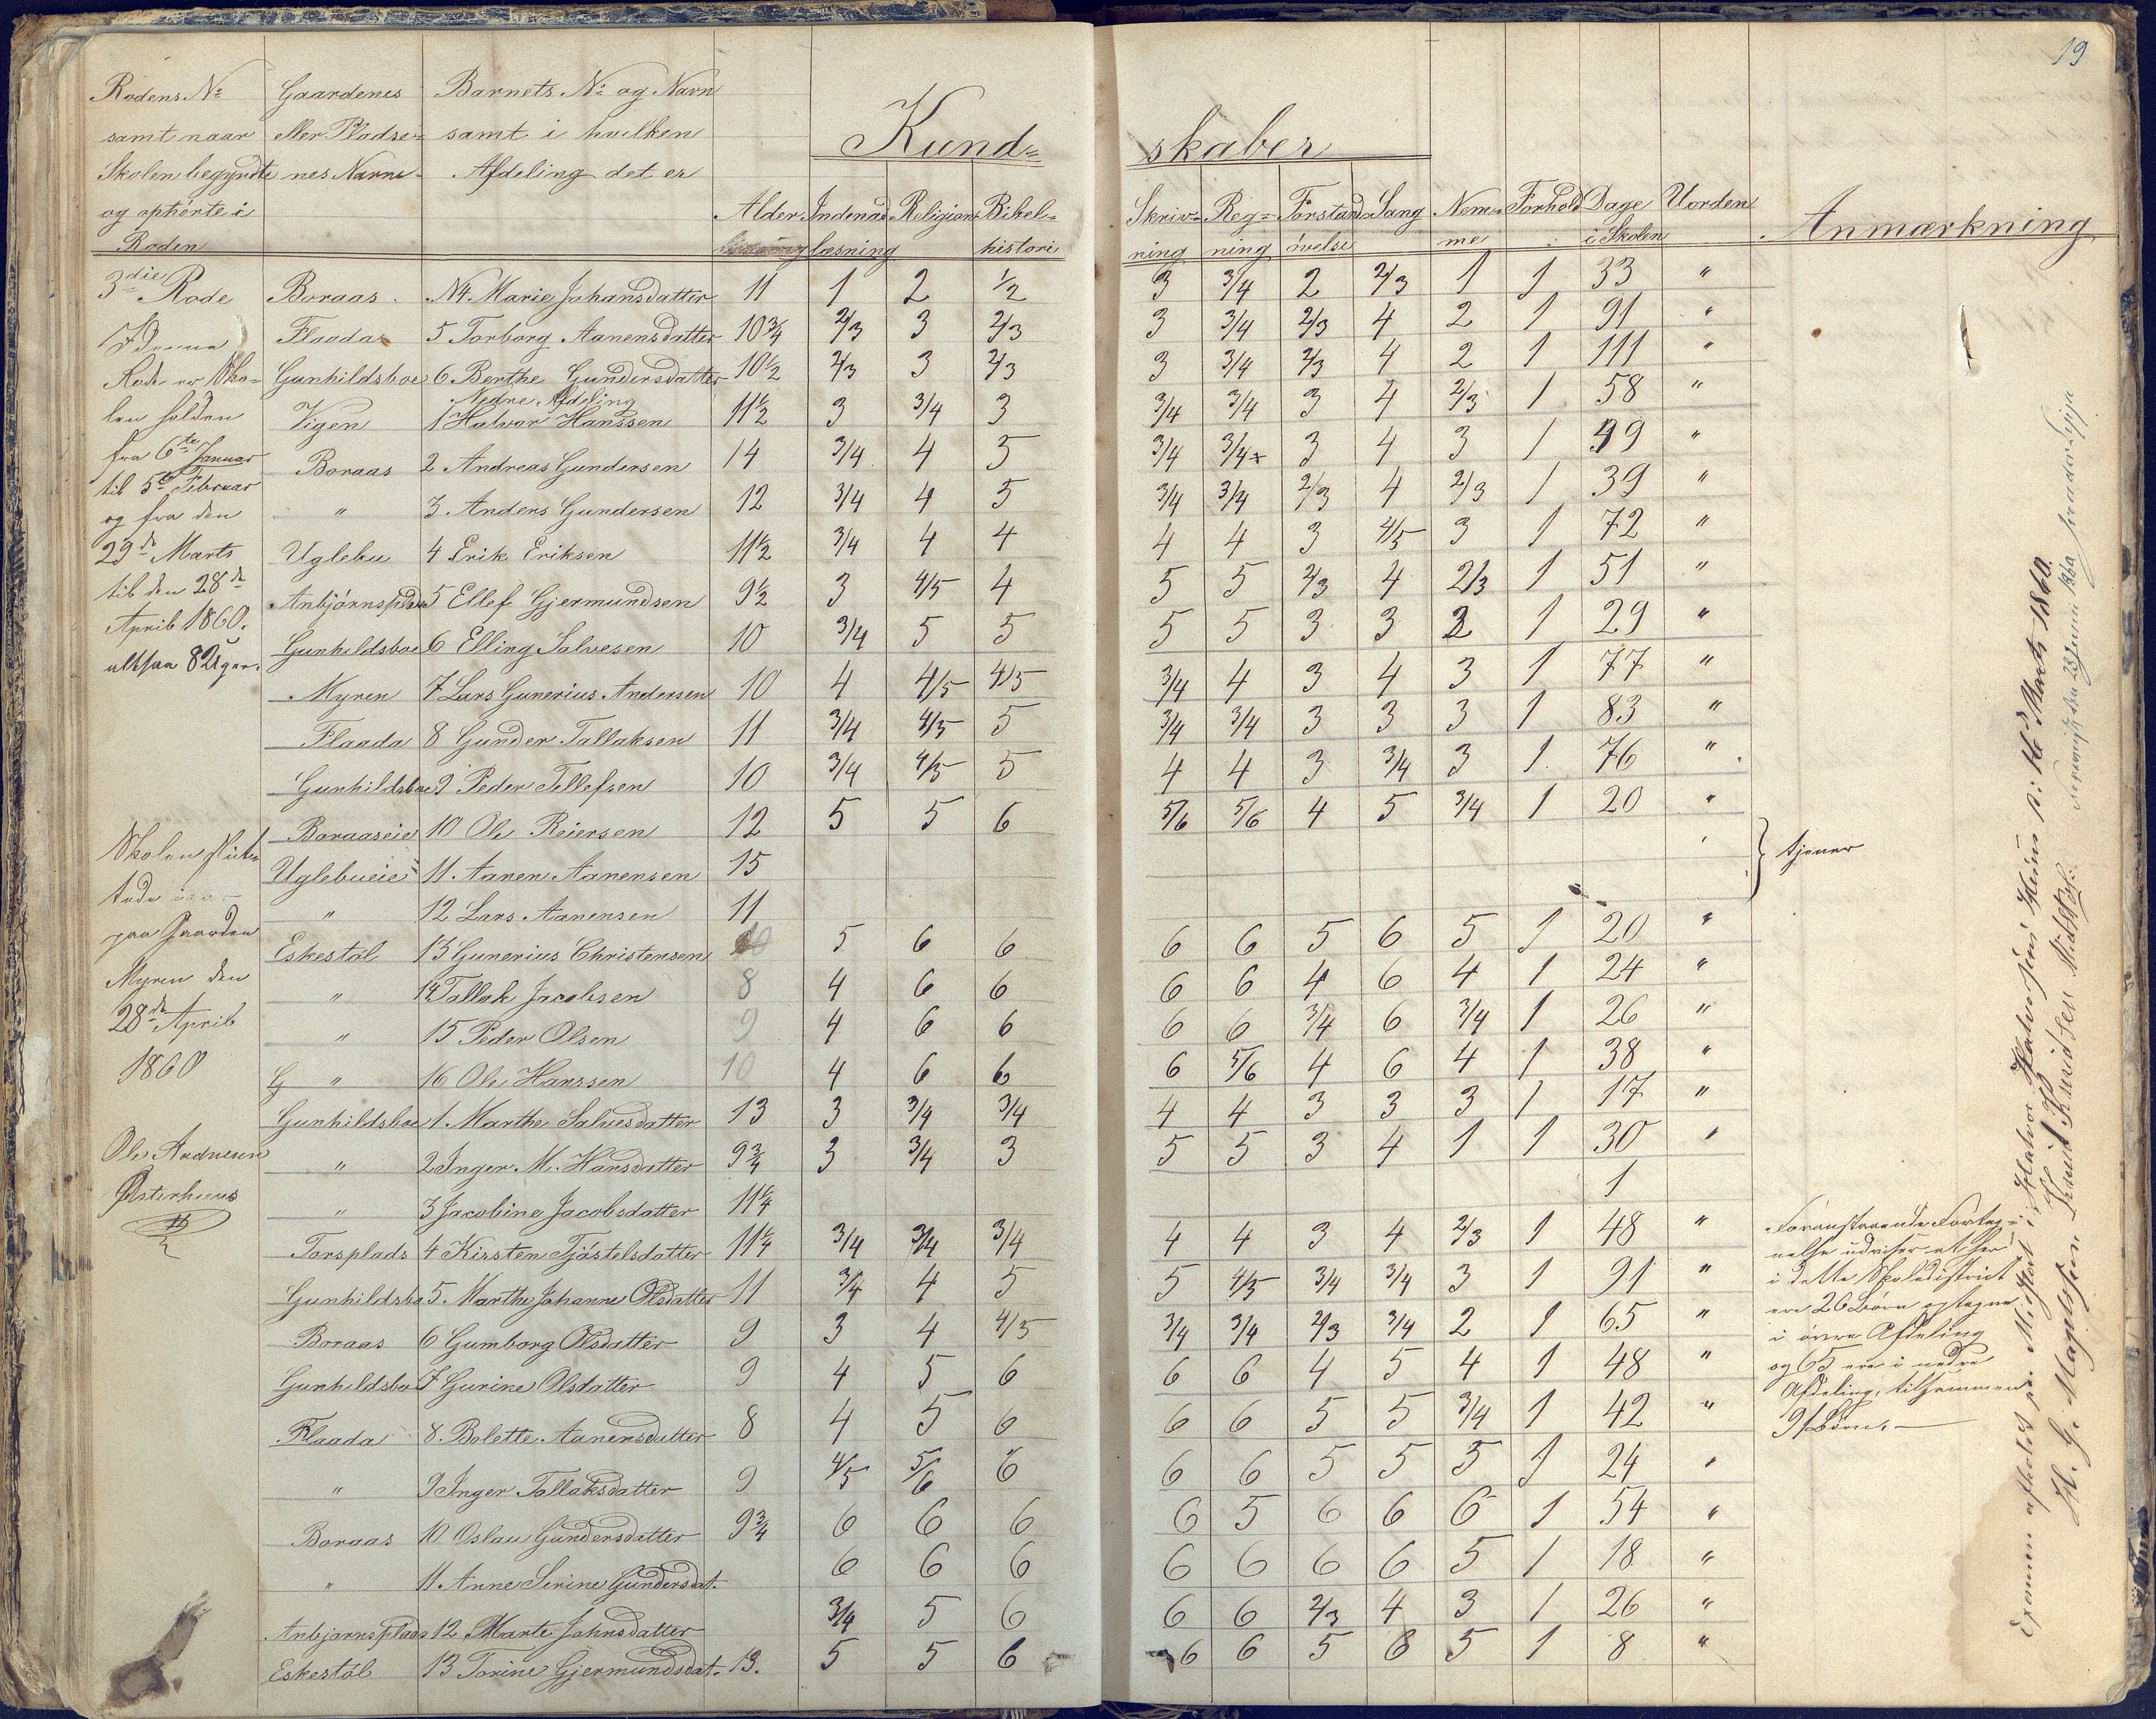 19
Rodens No Gaardenes Barnets No og Navn
samt naar eller Pladse= samt i hvilken
Skolen begyndte nes Navne Afdeling det er
og ophörte i
Roden
Kund= skaber
Alder Indenad Religion Bibel= Skriv= Reg= Forstands Sang Nem= Forhold Dage Uorden Anmærkning
læsning histori ning ning övelse me i Skolen
3die Rode Boraas No 4 Marie Johansdatter 11 1 2 1/2 3 3/4 2 2/3 1 1 33 "
Flaadas 5 Torborg Aanensdatter 10 3/4 2/3 3 2/3 3 3/4 2/3 4 2 1 91 "
Gunhildsboe 6 Berthe Gundersdatter 10 1/2 2/3 3 2/3 3 3/4 2/3 4 2 1 111 "
Nedre Afdeling
Vigen 1 Halvor Hanssen 11 1/2 3 3/4 3 3/4 3/4 3 4 2/3 1 58 "
Boraas 2 Andreas Gundersen 14 3/4 4 5 3/4 3/4 3 4 3 1 49 "
" 3 Anders Gundersen 12 3/4 4 5 3/4 3/4 2/3 4 2/3 1 39 "
Uglebu 4 Erik Eriksen 11 1/2 3/4 4 4 4 4 3 4/5 3 1 72 "
Anbjörnsplads 5 Ellef Gjermundsen 9 1/2 3 4/5 4 5 5 2/3 4 2/3 1 51 "
Gunhildsboe 6 Elling Salvesen 10 3/4 5 5 5 5 3 3 2 1 29 "
Myren 7 Lars Gunerius Andersen 10 4 4/5 4/5 3/4 4 3 4 3 1 77 "
Flaada 8 Gunder Tallaksen 11 3/4 4/5 5 3/4 3/4 3 3 3 1 83 "
Gunhildsboe 9 Peder Tellefsen 10 3/4 4/5 5 4 4 3 3/4 3 1 76 "
Boraaseie 10 Ole Reiersen 12 5 5 6 5/6 5/6 4 5 3/4 1 20 "
Uglebueie 11 Aanen Aanensen 15 tjener
" 12 Lars Aanensen 11
Eskestöl 13 Gunerius Christensen 10 5 6 6 6 6 5 6 5 1 20 "
" 14 Tallak Jacobsen 8 4 6 6 6 6 4 6 4 1 24 "
" 15 Peder Olsen 9 4 6 6 6 6 3/4 6 3/4 1 26 "
G " 16 Ole Hanssen 10 4 6 6 6 5/6 4 6 4 1 38 "
Gunhildsboe 1. Marthe Salvesdatter 13 3 3/4 3/4 4 4 3 3 3 1 17 "
" 2 Inger M. Hansdatter 9 3/4 3 3/4 3 5 5 3 4 1 1 30 "
" 3 Jacobine Jacobsdatter 11 1/4 1
Torsplads 4 Kirsten Tjöstelsdatter 11 1/4 3/4 3/4 3/4 4 4 3 4 2/3 1 48 "
Gunhildsbo 5. Marthe Johanne Olsdatter 11 3/4 4 5 5 4/5 3/4 3/4 3 1 91 "
Boraas 6 Gumborg Olsdatter 9 3 4 4/5 3/4 3/4 2/3 3/4 2 1 65 "
Gunhildsbo 7 Gurine Olsdatter 9 4 5 6 6 6 4 5 4 1 48 "
Flaada 8. Bolette Aanensdatter 8 4 5 6 6 6 5 5 3/4 1 42 "
" 9 Inger Tallaksdatter 9 4/5 5/6 6 6 6 5 5 5 1 24 "
Boraas 10 Oslau Gundersdatter 9 3/4 6 6 6 6 5 6 6 6 1 54 "
" 11. Anne Serine Gundersdat. 6 6 6 6 6 6 6 5 1 18 "
Anbjornsplads 12 Marte Johnsdatter 3/4 5 6 6 6 2/3 4 3 1 26 "
Eskestöl 13 Torine Gjermundsdat. 13. 5 5 6 6 6 5 6 5 1 8 "
I denne
Rode er Sko=
len holden
fra 6te Januar
til 5te Februar
og fra den
29de Marts
til den 28de
April 1860.
altsaa 8 Uger.
Skolen slut=
tede
paa Gaarden
Myren den
28de April
1860
Ole Andresen
Østerhuus
Foranstaaende Forteg=
nelse udviser at her
i dette Skoledistrict
ere 26 Börn optegne
i övre Afdeling
og 65 ere i nedre
Afdeling, tilsammen
91 Börn.
Examen afholdt 16de Marts 1860.
H. G. Magelssen Knud Knudsen